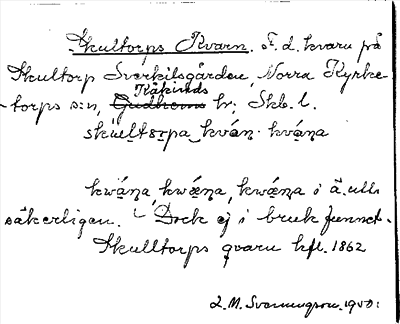 Skultorps Kvarn. F. d. kvarn på
Skultorp Sverkilsgården, Norra Kyrke-
torps s:n, Gudhems Kåkinds hr, Skb. l.
skũełtɜrpa kván. kváṇa
kwáṇa, kwǽṇa, kwǽṇa i ä. ull.
säkerligen. Dock ej i bruk funnet.
Skulltorps qvarn hfl. 1862
1950.